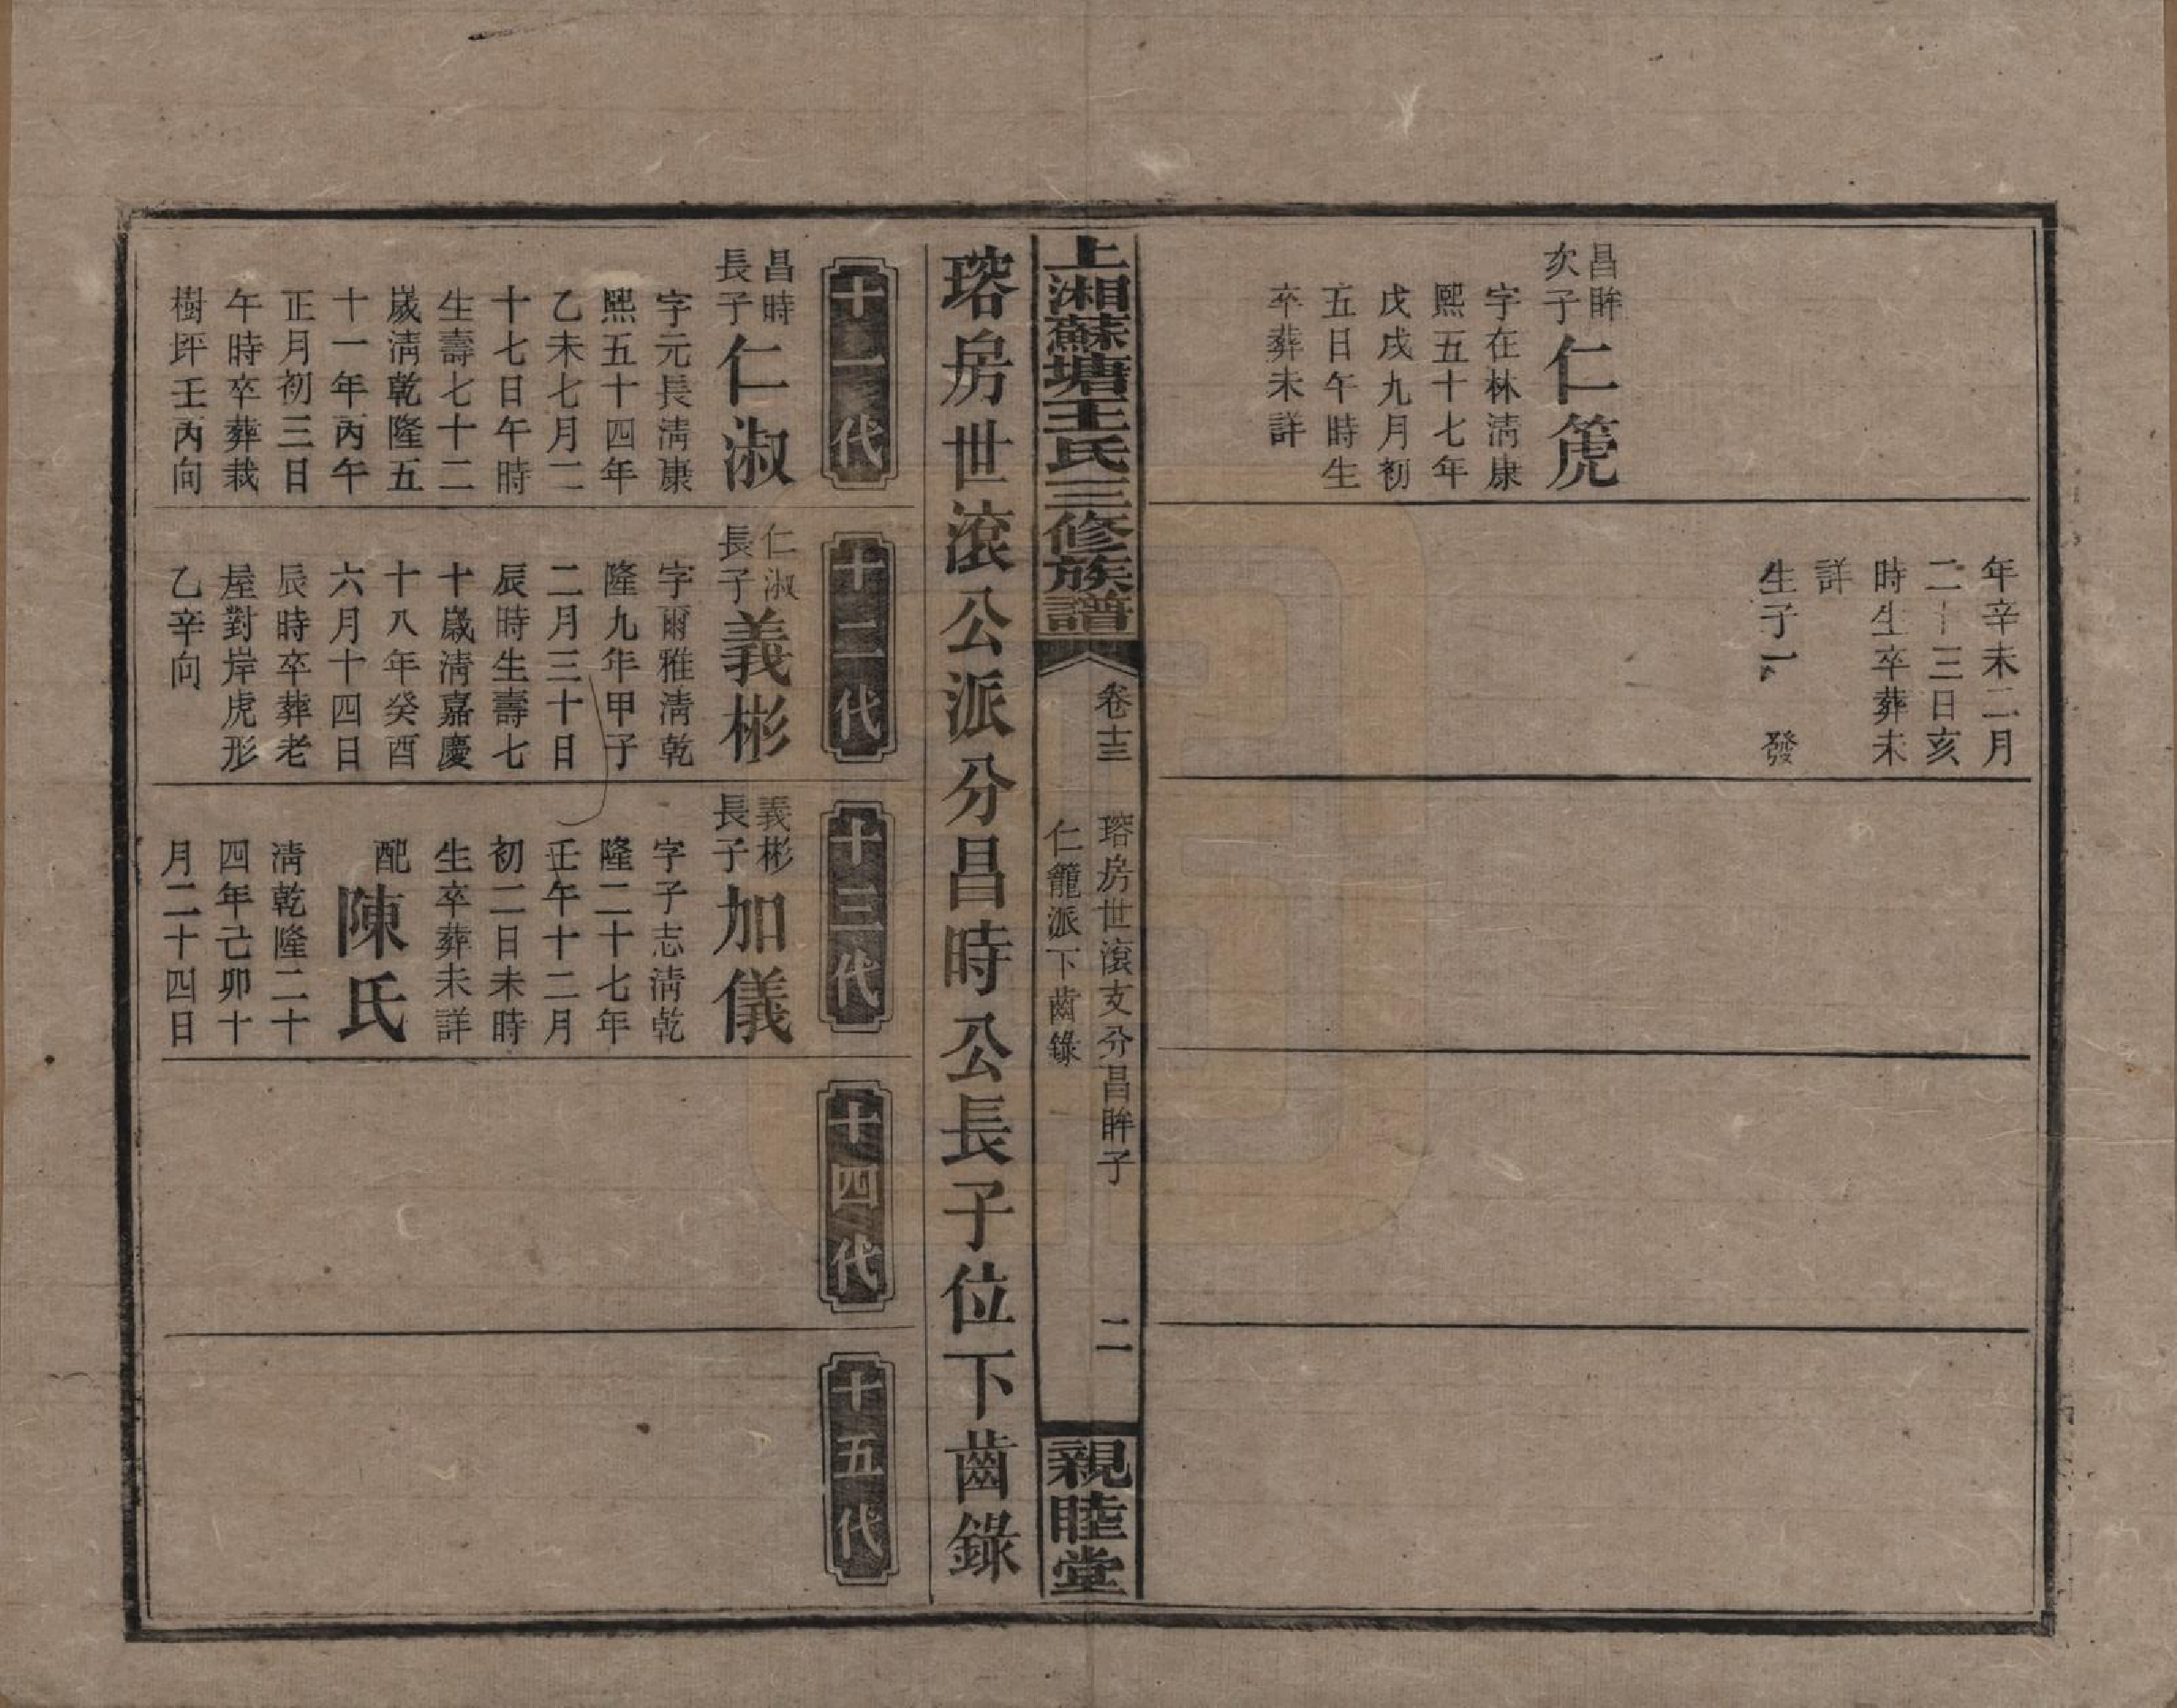 昌眸
次子
仁箎
字在林清康
熙五十七年
戊戌九月初
五日午時生
卒葬未詳
年辛未二月
二十三日亥
時生卒葬未
詳
生子一 發
上湘蘇塘王氏三修族譜
卷十三
瑢房世滾支分昌眸子
仁籠派下齒錄
二
親睦堂
瑢房世滾公派分昌時公長子位下齒錄
十一代
昌時
長子
仁淑
字元長清康
熙五十四年
乙未七月二
十七日午時
生壽七十二
歲清乾隆五
十一年丙午
正月初三日
午時卒葬栽
樹坪壬丙向
十二代
仁淑
長子
義彬
字爾雅清乾
隆九年甲子
二月三十日
辰時生壽七
十歲清嘉慶
十八年癸酉
六月十四日
辰時卒葬老
屋對岸虎形
乙辛向
十三代
義彬
長子
加儀
字子志清乾
隆二十七年
壬午十二月
初二日未時
生卒葬未詳
配
陳氏
清乾隆二十
四年己卯十
月二十四日
十四代
十五代